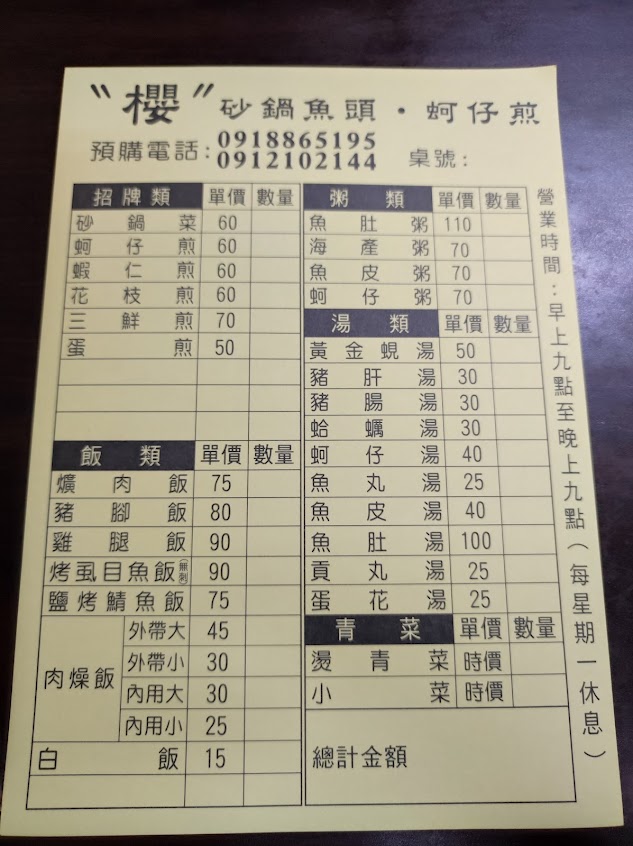 "櫻"砂鍋魚頭·蚵仔煎
預購電話:0918865195
0912102144
桌號:
招牌類 單價 數量
砂鍋菜 60
蚵仔煎 60
蝦仁煎 60
花枝煎 60
三鮮煎 70
蛋煎 50
飯類 單價 數量
爌肉飯 75
豬腳飯 80
雞腿飯 90
烤虱目魚飯(無刺) 90
鹽烤鯖魚飯 75
肉燥飯
外帶大 45
外帶小 30
內用大 30
內用小 25
白飯 15
粥類 單價 數量
魚肚粥 110
海產粥 70
魚皮粥 70
蚵仔粥 70
湯類 單價 數量
黃金蜆湯 50
豬肝湯 30
豬腸湯 30
蛤蠣湯 30
蚵仔湯 40
魚丸湯 25
魚皮湯 40
魚肚湯 100
貢丸湯 25
蛋花湯 25
青菜 單價 數量
燙青菜 時價
小菜 時價
總計金額
營業時間:早上九點至晚上九點(每星期一休息)